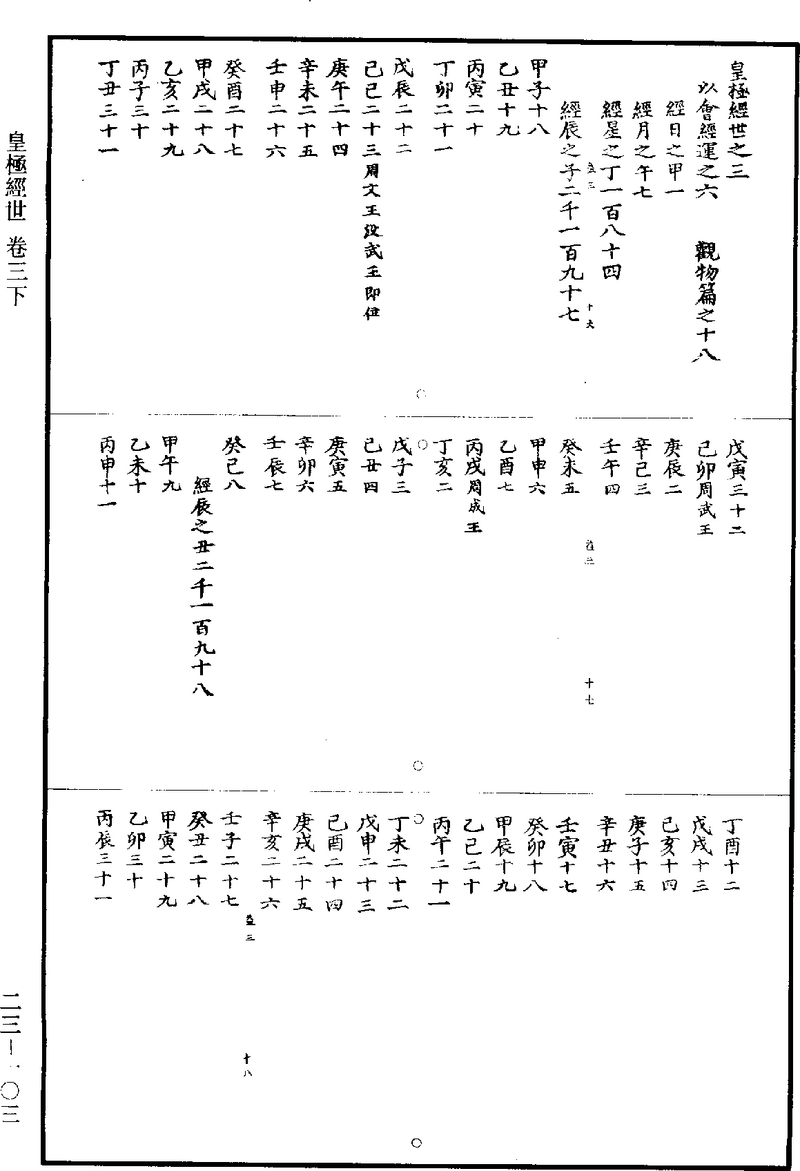 皇極經世之三
以會經運之六 觀物篇之十八
經日之甲一
經月之午七
經星之丁一百八十四
經辰之子二千一百九十七
甲子十八
乙丑十九
丙寅二十
丁卯二十一
戊辰二十二
己巳二十三周文王沒武王即位
庚午二十四
辛未二十五
壬申二十六
癸酉二十七
甲戌二十八
乙亥二十九
丙子三十
丁丑三十一
戊寅三十二
己卯周武王
庚辰二
辛巳三
壬午四
癸未五
甲申六
乙酉七
丙戌周成王
丁亥二
戊子三
己丑四
庚寅五
辛卯六
壬辰七
癸巳八
經辰之丑二千一百九十八
甲午九
乙未十
丙申十一
丁酉十二
戊戌十三
己亥十四
庚子十五
辛丑十六
壬寅十七
癸卯十八
甲辰十九
乙巳二十
丙午二十一
丁未二十二
戊申二十三
己酉二十四
庚戌二十五
辛亥二十六
壬子二十七
癸丑二十八
甲寅二十九
乙卯三十
丙辰三十一
十六
十七
十八
皇極經世 卷三下
二三—一〇三